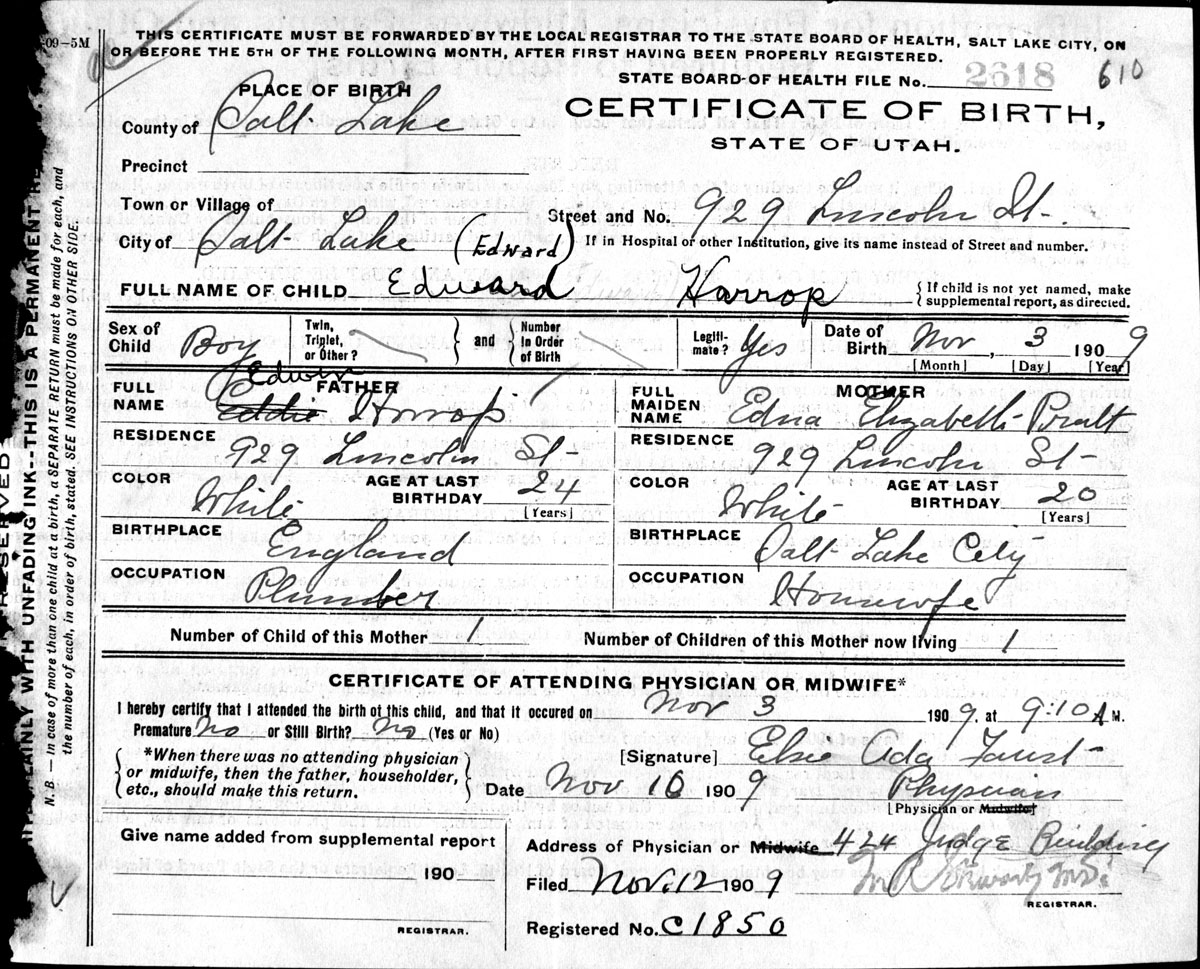 09-5M
THIS CERTIFICATE MUST BE FORWARDED BY THE LOCAL REGISTRAR TO THE STATE BOARD OF HEALTH, SALT LAKE CITY, ON
OR BEFORE THE 5TH OF THE FOLLOWING MONTH, AFTER FIRST HAVING BEEN PROPERLY REGISTERED.
STATE BOARD OF HEALTH FILE No. 2618 610
PLACE OF BIRTH
CERTIFICATE OF BIRTH,
STATE OF UTAH.
County of Salt Lake
Precinct
Town or Village of
Street and No. 929 Lincoln St.
City of Salt Lake (Edward) If in Hospital or other Institution, give its name instead of Street and number.
FULL NAME OF CHILD Edward Harrop { If child is not yet named, make supplemental report, as directed.
Sex of Child Boy Twin, Triplet, or Other? } and { Number in Order of Birth Legiti-mate? Yes Date of Birth Nov, 3 1909
[Month] [Day] [Year]
FULL NAME FATHER Edwin Eddie Harrop
FULL MAIDEN NAME MOTHER Edna Elizabeth
RESIDENCE 929 Lincoln St- RESIDENCE 929 Lincoln St-
COLOR White AGE AT LAST BIRTHDAY 24 [Years] COLOR White AGE AT LAST BIRTHDAY 20 [Years]
BIRTHPLACE England BIRTHPLACE Salt Lake City
OCCUPATION Plumber OCCUPATION Housewife
Number of Child of this Mother 1 Number of Children of this Mother now living 1
CERTIFICATE OF ATTENDING PHYSICIAN OR MIDWIFE*
I hereby certify that I attended the birth of this child, and that it occured on Nov 3 1909. at 9:10 A M.
Premature No or Still Birth? No (Yes or No)
*When there was no attending physician
or midwife, then the father, householder,
etc., should make this return.
[Signature] Elsie Ada Faust
Date Nov 10 1909 Physician
[Physician or Midwife]
Give name added from supplemental report
190
REGISTRAR.
Address of Physician or Midwife 424 Judge Building
Filed Nov. 12 1909
REGISTRAR.
Registered No. C1850
PLAINLY WITH UNFADING INK--THIS IS A PERMANENT
N. B. — In case of more than one child at a birth, a SEPARATE RETURN must be made for each, and
the number of each, in order of birth, stated. SEE INSTRUCTIONS ON OTHER SIDE.